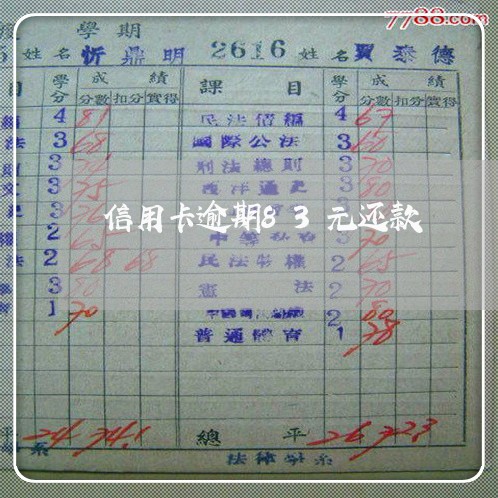 7788.com
學期
姓名 忻鼎明 2616 姓名 賈泰德
目 學分 成績 課目 學分 成績
分數 扣分 實得 分數 扣分 實得
4 81 民法債編 4 67
法 3 68 國際公法 3 60
3 刑法總則 3 70
3 75 西洋通史 3 80
信用卡逾期83元还款
2 3 70
法 2 68 68 民法物權 2 65
3 80 憲法 2 70
1 70 2 80
普通體育 1 78
平 24 74.1 總平 26 72.3
系 法律學系